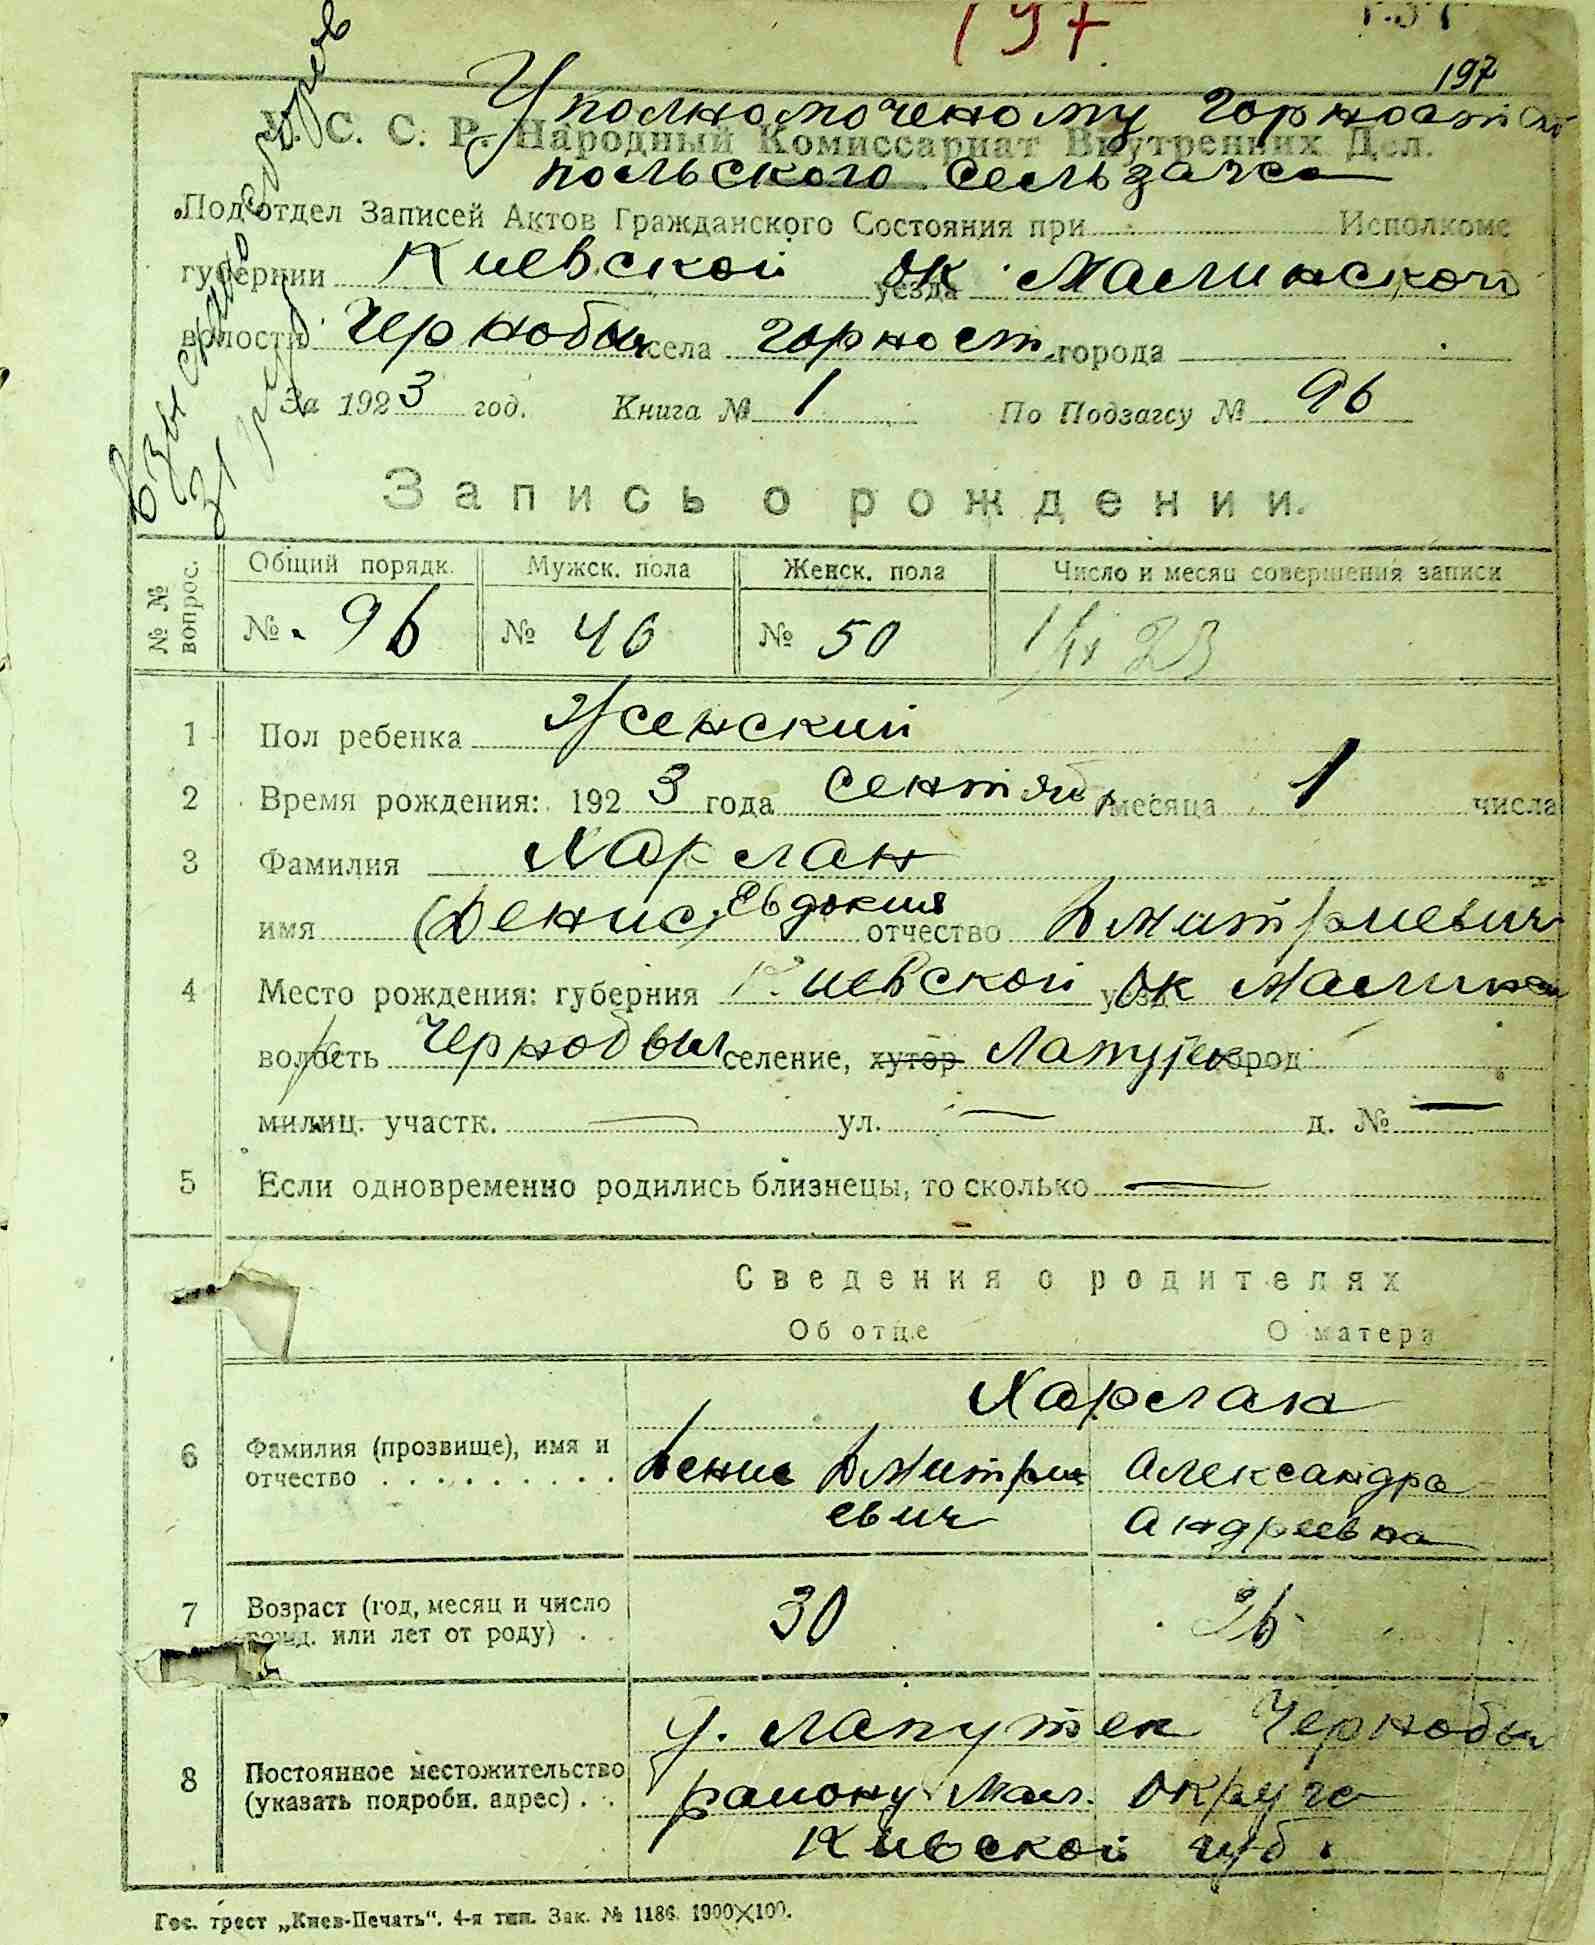 197
197
Уполномоченому Горностай
У. С. С. Р. Народный Комиссариат Внутренних Дел.
польского сельзагса
Подотдел Записей Актов Гражданского Состояния при Исполкоме
губернии Киевской уезда ок Малинского
волости Чернобыл села Горност города —
За 1923 год. Книга № 1 По Подзагсу № 96
Взыскано
31
Запись о рождении.
№ № вопрос. Общий порядк. Мужск. пола Женск. пола Число и месяц совершения записи
№ 96 № 46 № 50 1/IX 23
1 Пол ребенка Женский
2 Время рождения: 1923 года Сентяб месяца 1 числа
3 Фамилия Харлан
имя (Денис) Евдокия отчество Дмитриевич
4 Место рождения: губерния Киевской уезд ок Малинск
волость Чернобыл селение, хутор Лапутек город
милиц. участк. — ул. — д. № —
5 Если одновременно родились близнецы, то сколько —
Сведения о родителях
Об отце О матери
Харлан
6 Фамилия (прозвище), имя и отчество Денис Дмитриевич Александра Андреевна
7 Возраст (год, месяц и число рожд. или лет от роду) 30 26
8 Постоянное местожительство (указать подробн. адрес) у. Лапутек Чернобы
району Мал. Округа
Кивской губ.
Гос. трест „Киев-Печать“. 4-я тип. Зак. № 1186. 1900×100.